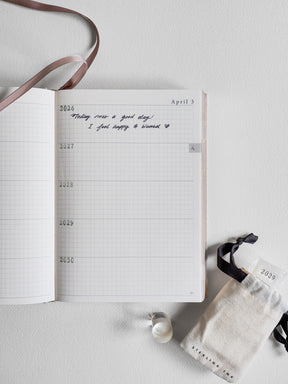 April 3
2026
Today was a good day.
I feel happy &
2027
4
2028
2029
2030
2029
STERLING INK